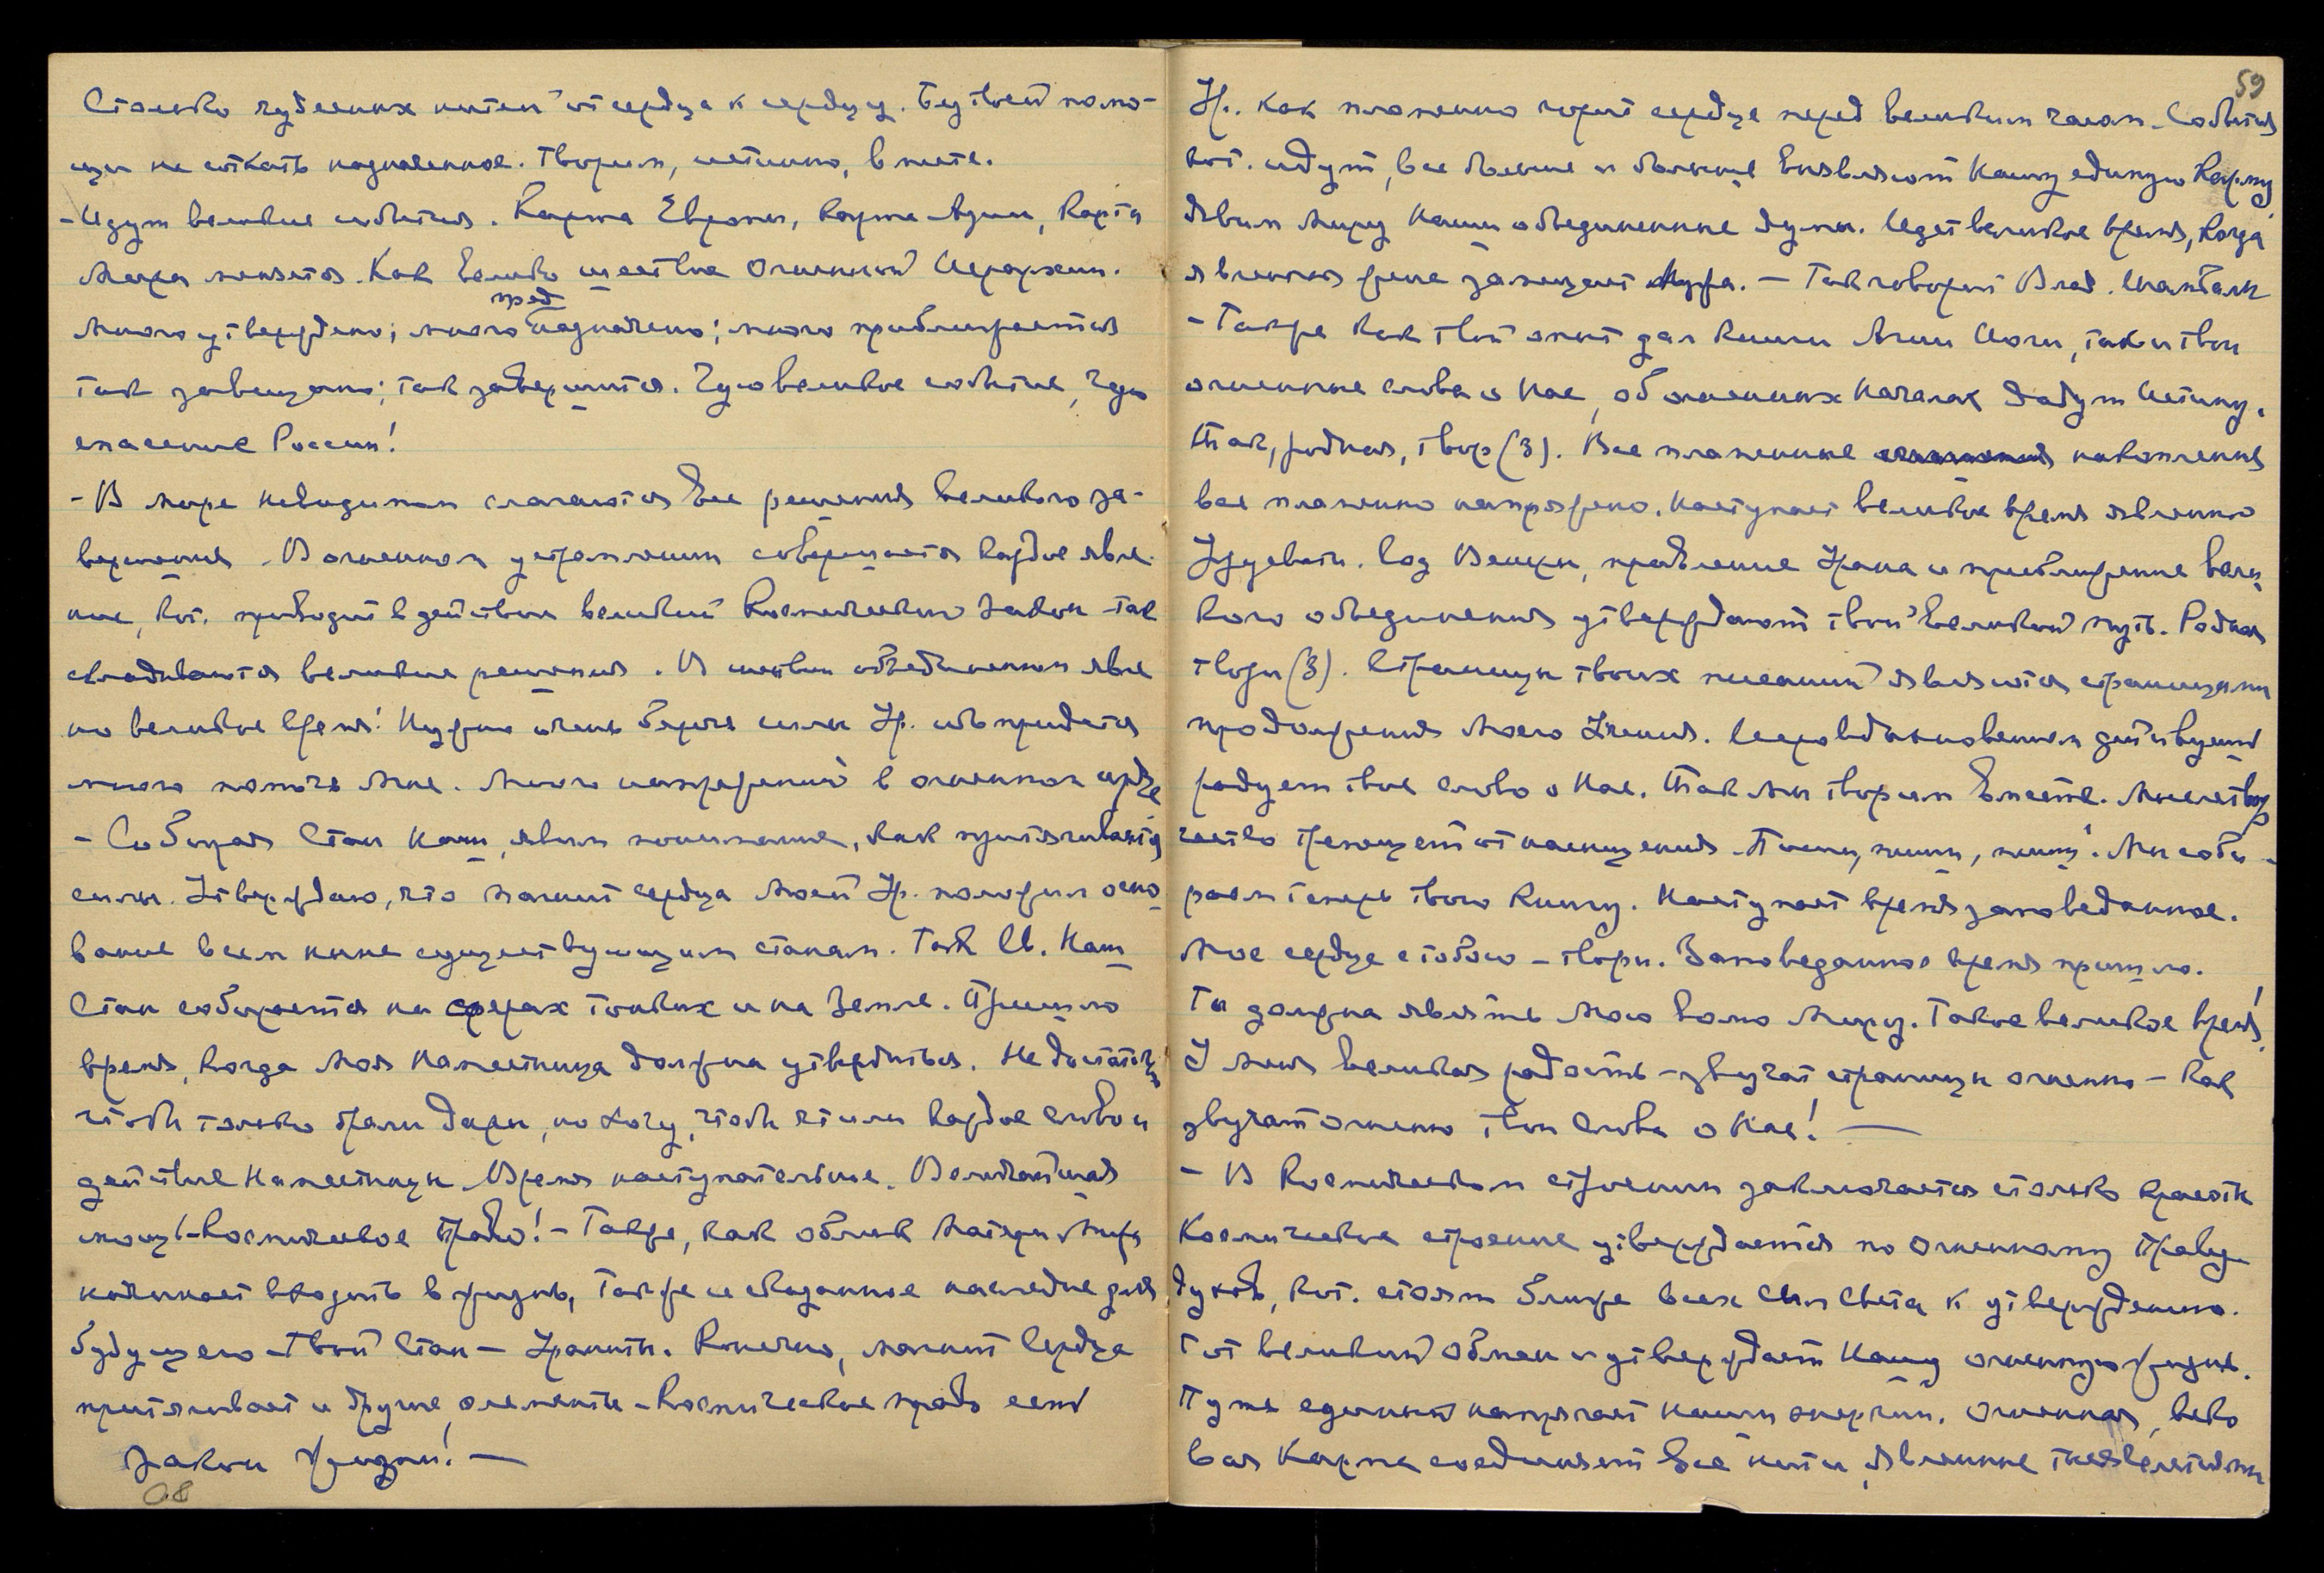 Столько чудесных нитей от сердца к сердцу. Без твоей помо-
щи не соткать назначенное. Творим, истинно, вместе.
- Идут великие события. Карта Европы, карта Азии, карта
Мира меняется. Как велико шествие Огненной Иерархии.
Много утверждено; много предназначено; много приближается
так завещано; так завершится. Чую великое событие, чую
спасение России!
- В мире невидимом слагаются все решения великого за-
вершения. В огненном устремлении совершается каждое явле-
ние, кот. приводит в действие великий Космический Закон - так
складываются великие решения. В шествии объединенном явле
но великое время! Нужно очень беречь силы Ур. ибо придется
много помочь Мне. Много напряжений в огненном сердце
- Собирая Стан Наш, явим понимание, как притягиваются
силы. Утверждаю, что магнит сердца Моей Ур. положил осно
вание всем ныне существующим станам. Так Св. Наш
Стан собирается на сферах тонких и на Земле. Пришло
время, когда Моя Наместница должна утвердиться. Не достаточно
чтоб только брали дары, но хочу, чтоб чтили каждое слово и
действие Наместницы. Время наступательное. Величайшая
мощь - Космическое Право! - Также, как облик Матери Мира
начинает входить в жизнь, также и сказанное наследие для
будущего - твой Стан - Хранить. Конечно, магнит Сердца
притягивает и другие элементы - Космическое право есть
Закон Жизни! —
08
59
Ур. Как пламенно горит сердце перед великим часом. События
кот. идут, все больше и больше выявляют Нашу единую Карму
Явим Миру Наши объединенные думы. Идет великое время, когда
явленная риза замещает Мира. - Так говорит Влад. Шамбалы
- Также как твой опыт дал Книги Агни Йоги, так и твои
огненные слова о Нас, об огненных Началах дадут Истину.
Так, родная, твор (3). Все пламенные накопления
все пламенно напряжено. Наступает великое время явленно
Уруевати. Ход Венеры, правление Урана и приближение вели
кого объединения утверждают твой великий путь. Родная
твори (3). Страницы твоих писаний являются страницами
продолжения Моего Учения. Иеровдохновением действует
радует твое слово о Нас. Так мы творим вместе. Мыслетвор
чество трепещет от насыщения. Пиши, пиши, пиши! Мы соби-
раем теперь твою Книгу. Наступает время заповеданное.
Мое сердце с тобою - твори. Заповеданное время пришло.
Ты должна являть Мою волю Миру. Такое великое время!
У меня великая радость - звучат страницы огненно - как
звучат огненно твои слова о Нас! —
- В Космическом строении заключается столько красоты
Космическое строение утверждается по Огненному Праву
духов, кот. стоят ближе всех Сил Света к утверждению.
Тот великий обмен и утверждает Нашу огненную жизнь.
Путь единый напрягает наши энергии. Огненная, веко
вая Карма соединяет все нити, явленные тысячелетиями